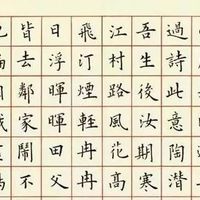 過詩此意陶潛
吾生後汝期寒
江村路風花高
飛汀煙輕冉冉
日浮暉暉田父
皆去鄰家鬧不